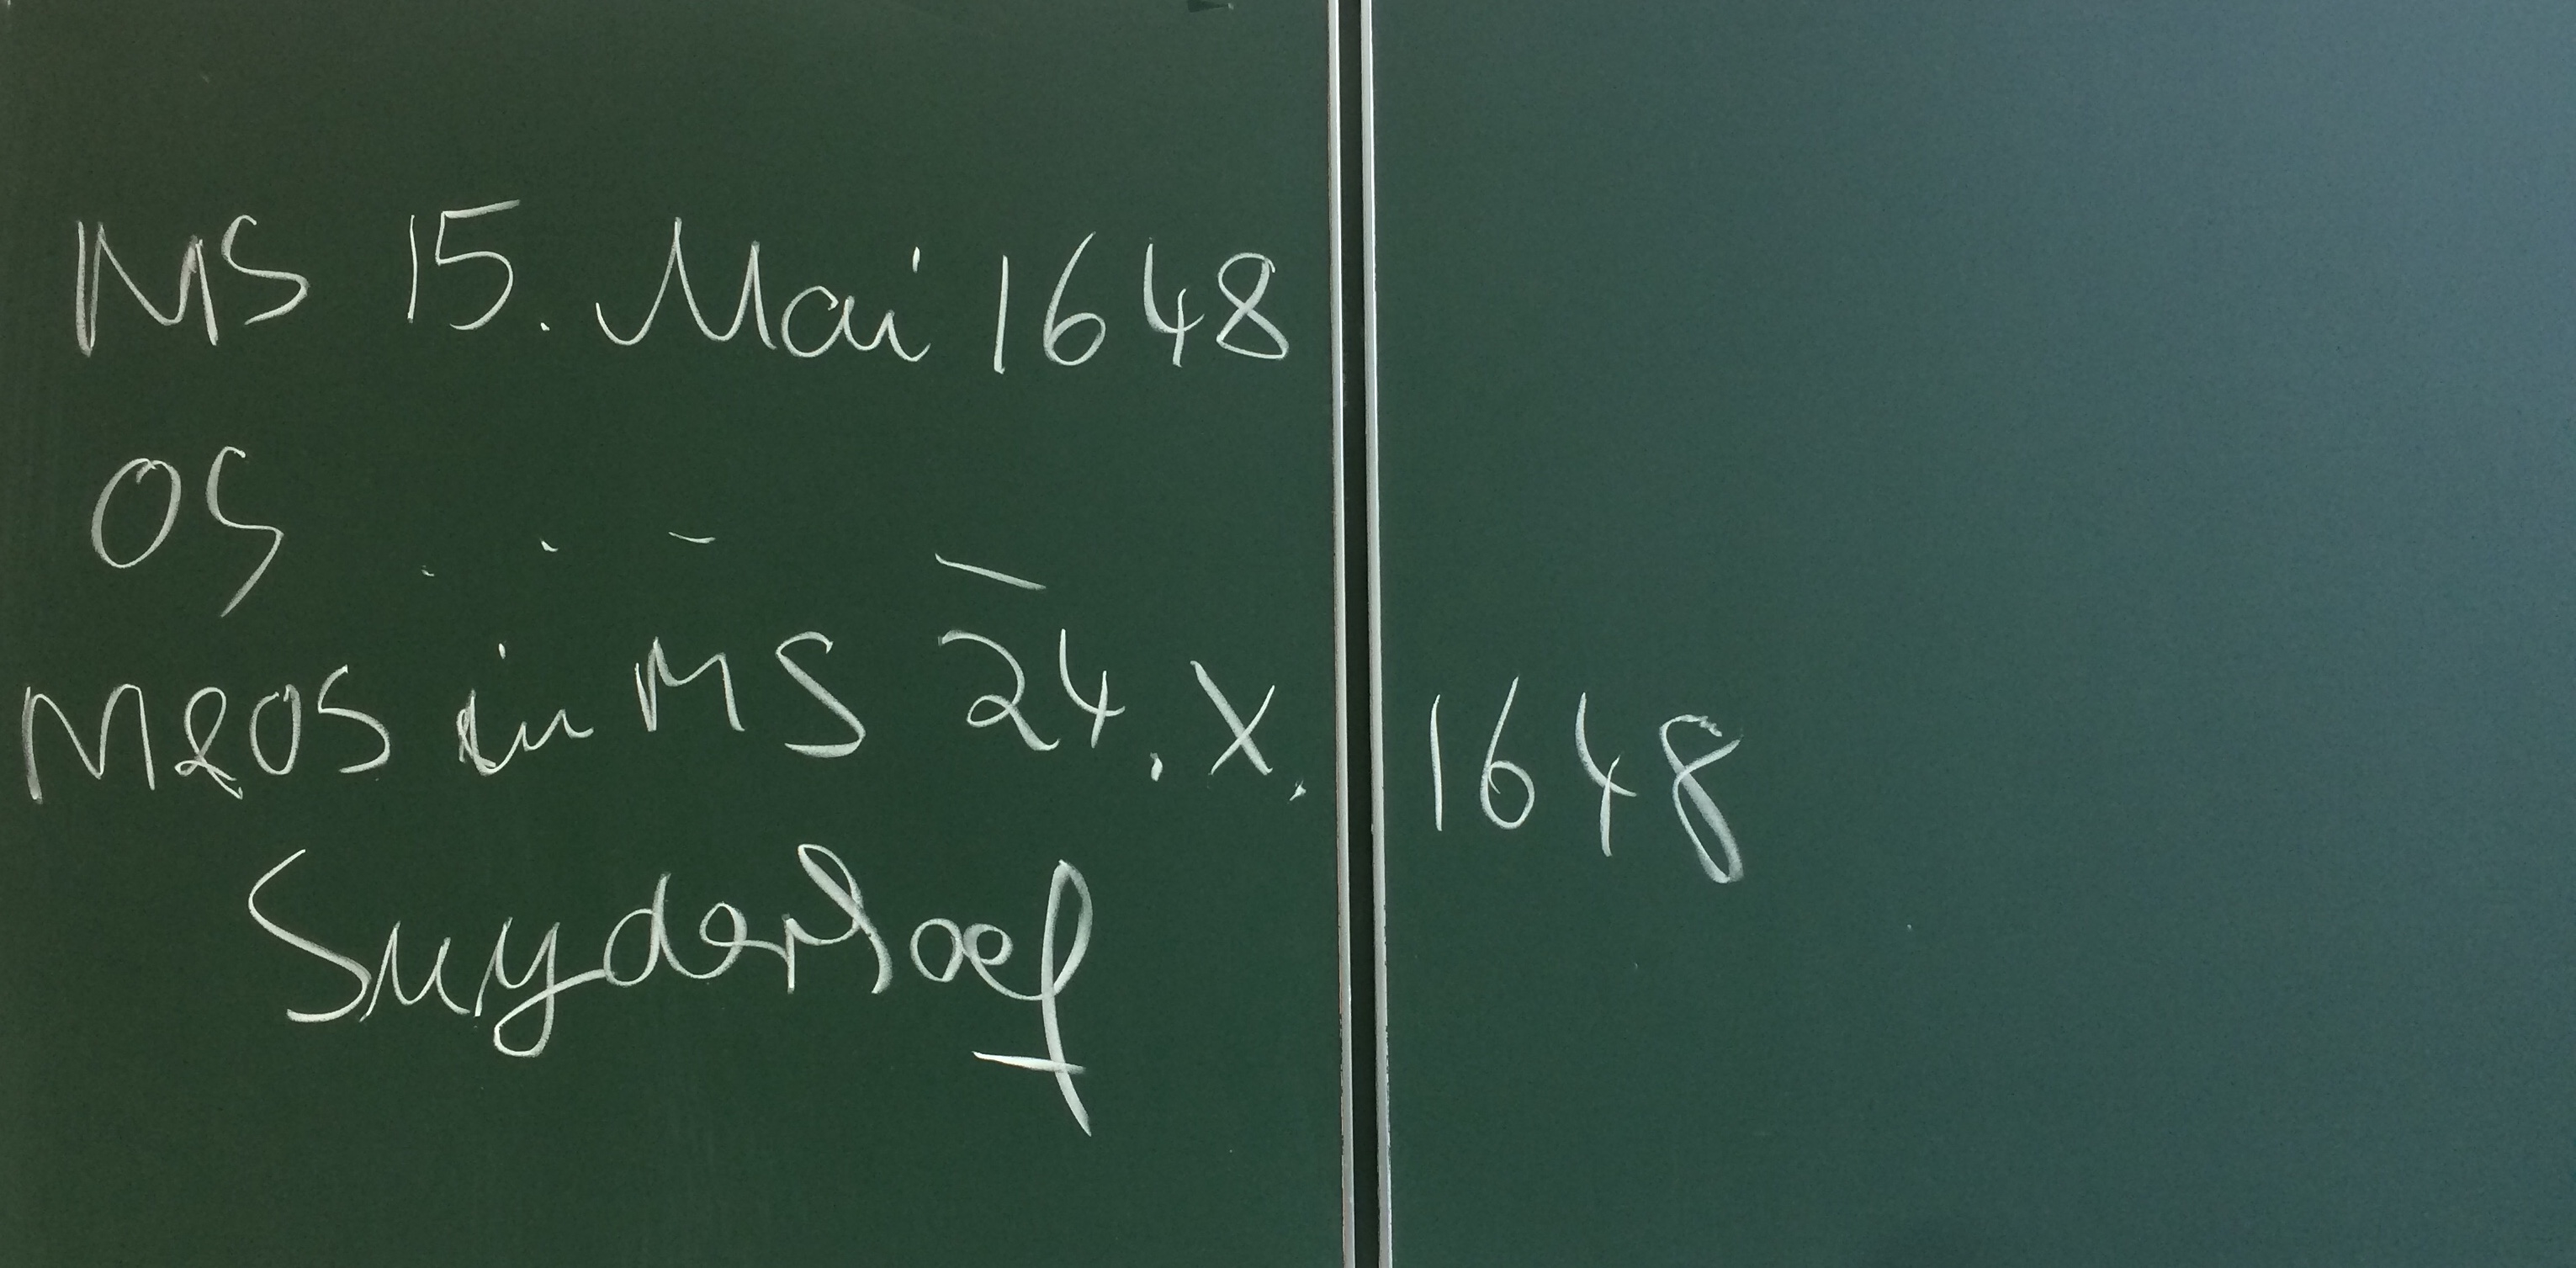 MS 15. Mai 1648
OS . . - —
M&OS in MS 24. X. 1648
Suyderhoef